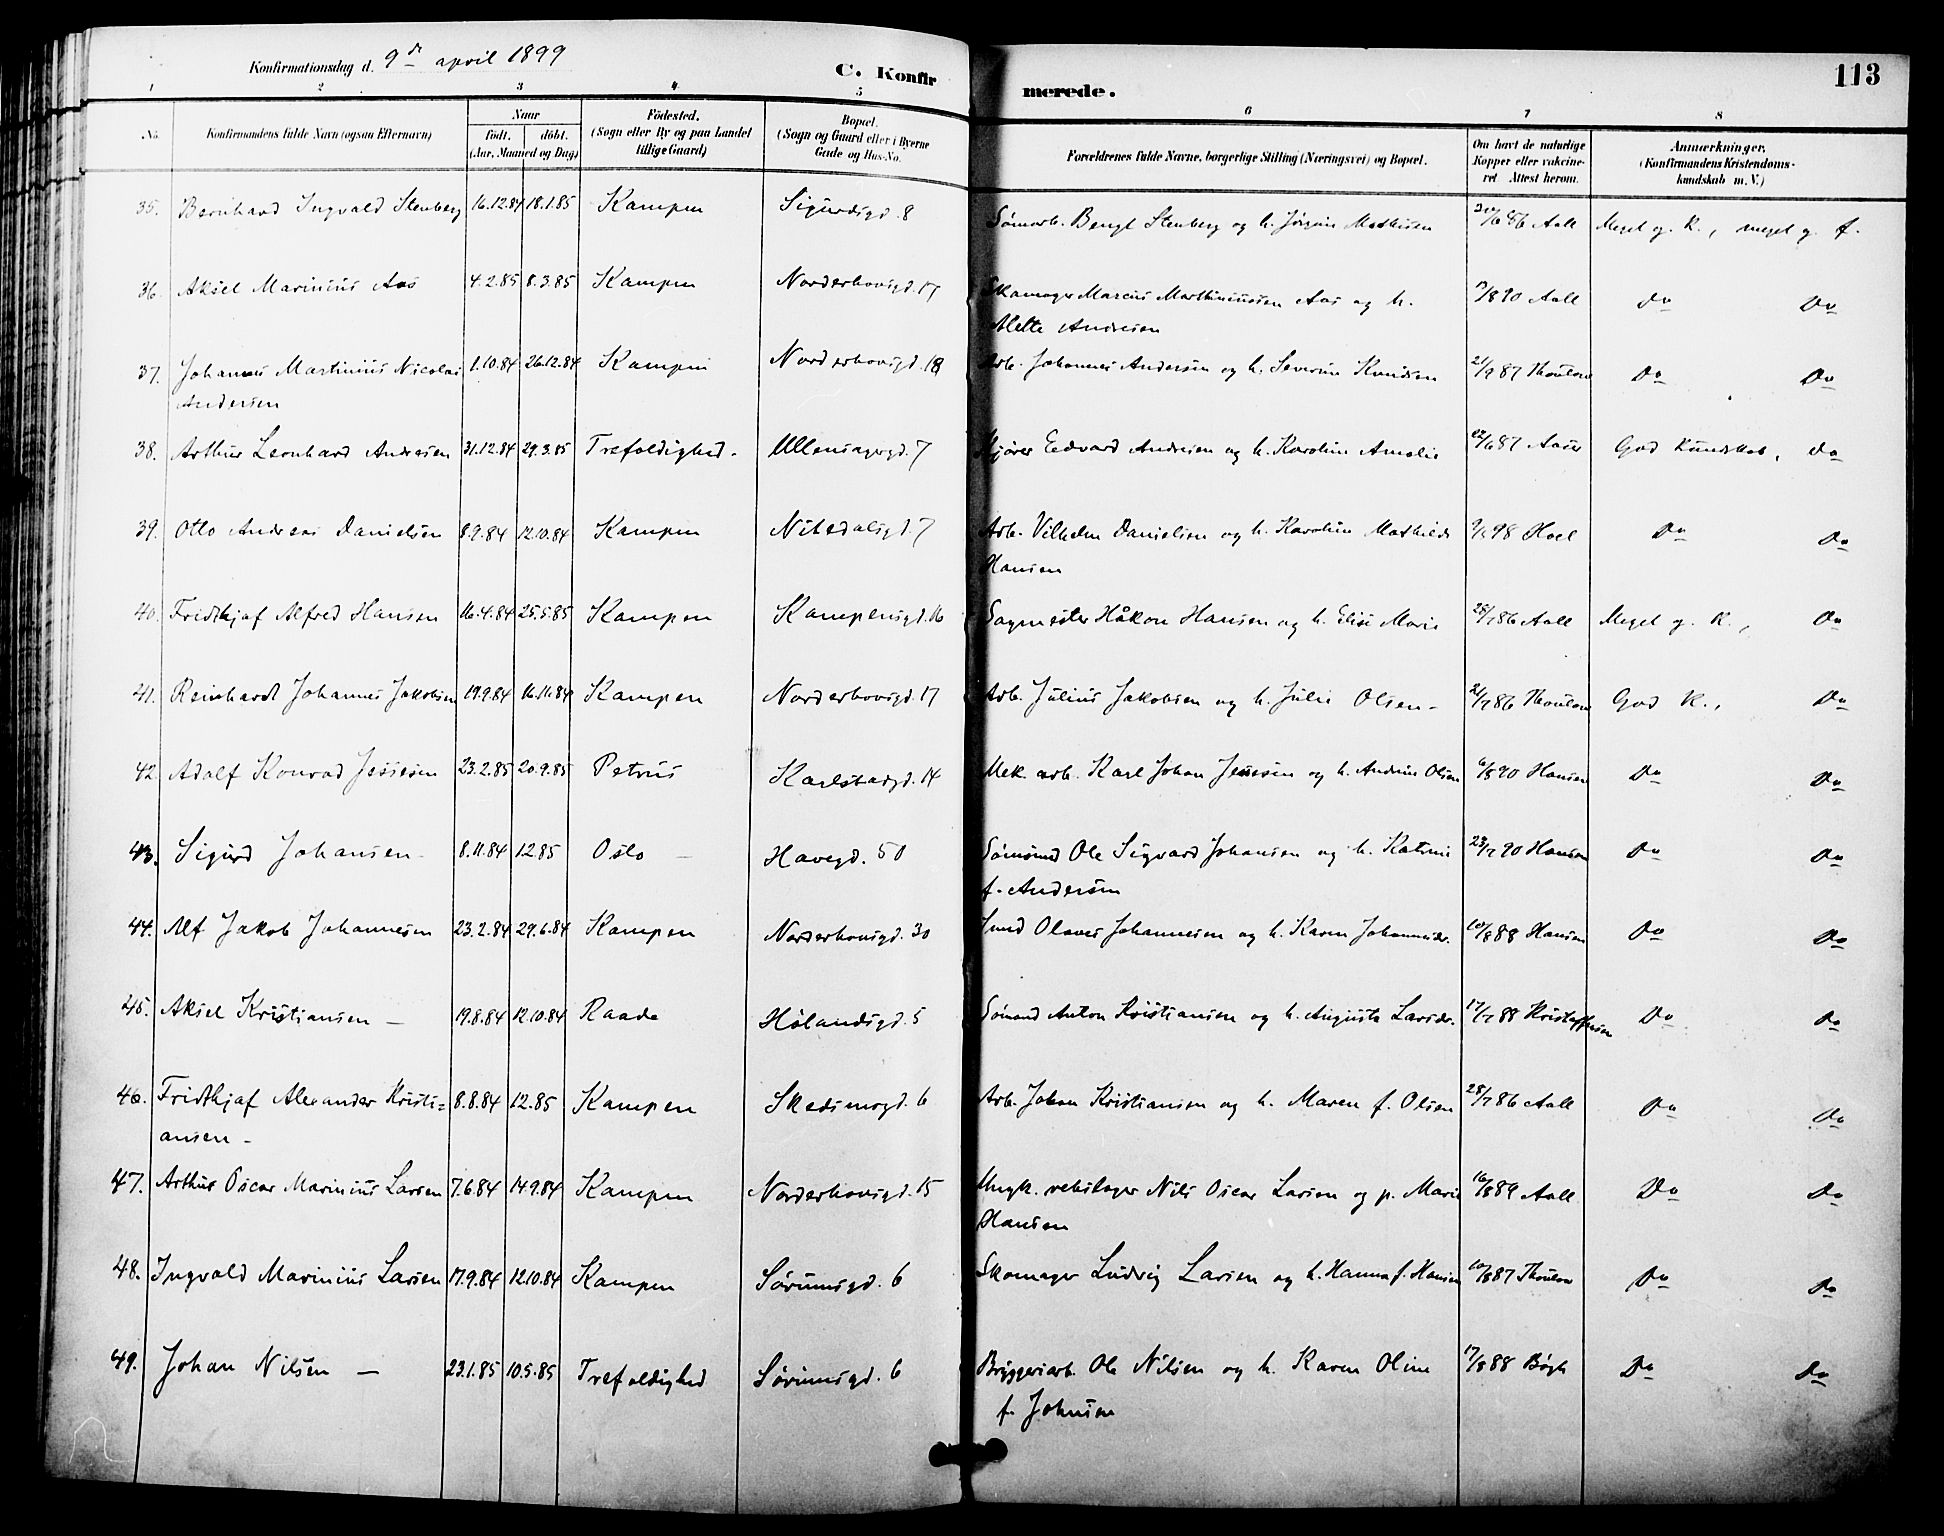 Konfirmationsdag d. 9de april 1899
C. Konfirmerede.
113
1 2 3 4 5 6 7 8
No. Konfirmandens fulde Navn (ogsaa Efternavn) Naar födt. döbt. (Aar, Maaned og Dag) Födested. (Sogn eller By og paa Landet tillige Gaard) Bopæl. (Sogn og Gaard eller i Byerne Gade og Hus-No. Forældrenes fulde Navne, borgerlige Stilling (Næringsvei) og Bopæl. Om havt de naturlige Kopper eller vakcineret Attest herom. Anmærkninger. (Konfirmandens Kristendomskundskab m. V.)
35. Bernhard Ingvald Stenberg 16.12.84 18.1.85 Kampen Sigurdsgd. 8 Sömarb. Bengt Stenberg og h. Jörgine Mathisen 86 Aall Meget g. K., meget g. f.
36. Aksel Marinius Aas 4.2.85 8.3.85 Kampen Norderhovsgd. 17 Skomager Marcus Marthiniussen Aas og h. /8 90 Aall Do Do
Mette Andresen
37. Johannes Martinius Nicolai 1.10.84 26.12.84 Kampen Norderhovsgd. 18 Arb. Johannes Andersen og h. Severine Knudsen 21/9 87 Thoulow Do Do
Andersen
38. Arthur Leonhard Andresen 31.12.84 29.3.85 Trefoldighed. Ullensagergd. 7 Kjører Edvard Andresen og h. Karoline Amalie /6 87 Aaser God Kundskab, Do
39. Otto Andreas Danielsen 8.9.84 12.10.84 Kampen Nitedalsgd. 7 Arb. Vilhelm Danielsen og h. Karoline Mathilde 98 Hoel Do Do
Hansen
40. Fridthjof Alfred Hansen 16.4.84 25.5.85 Kampen Kampensgd. 16 Sagmester Håkon Hansen og h. Elise Marie 28/7 86 Aall Meget g. K., Do
41. Reinhardt Johannes Jakobsen 19.9.84 16.11.84 Kampen Norderhovsgd. 17 Arb. Julius Jakobsen og h. Julie Olsen - 21/7 86 Thoulow God K., Do
42 Adolf Konrad Jessesen 23.2.85 20.9.85 Petrus Karlstadgd. 14 Mek. arb. Karl Johan Jensen og h. Andrine Olsen 6/8 90 Hansen Do Do
43. Sigurd Johansen - 8.11.84 1.2.85 Oslo - Havegd. 50 Sömand Ole Sigvard Johansen og h. Katrine 23/7 90 Hansen Do Do
f. Andersen
44. Alf Jakob Johannesen 23.2.84 29.6.84 Kampen Norderhovsgd. 30 Smed Olaves Johannesen og h. Karen Johannesdr. 10/8 88 Hansen Do Do
45. Aksel Kristiansen - 19.8.84 12.10.84 Raade Hölandsgd. 5 Sömand Anton Kristiansen og h. Augusta Larsdr. 17/7 88 Kristoffersen Do Do
46. Fridthjof Alexander Kristi= 8.8.84 1.2.85 Kampen Skedsmogd. 6 Arb. Johan Kristiansen og h. Maren f. Olsen 28/7 86 Aall Do Do
ansen -
47. Arthur Oscar Marinius Larsen 7.6.84 14.9.84 Kampen Norderhovsgd. 15 Ungk. rebslager Nils Oscar Larsen og p. Marie 16/8 89 Aall Do Do
Hansen
48. Ingvald Marinius Larsen 17.9.84 12.10.84 Kampen Sörumsgd. 6 Skomager Ludvig Larsen og h. Hanna f. Hansen 10/8 87 Thoulow Do Do
49. Johan Nilsen - 23.1.85 10.5.85 Trefoldighed Sörumsgd. 6 Bryggeriarb. Ole Nilsen og h. Karen Oline 17/8 88 Bögh Do Do
f. Johnsen